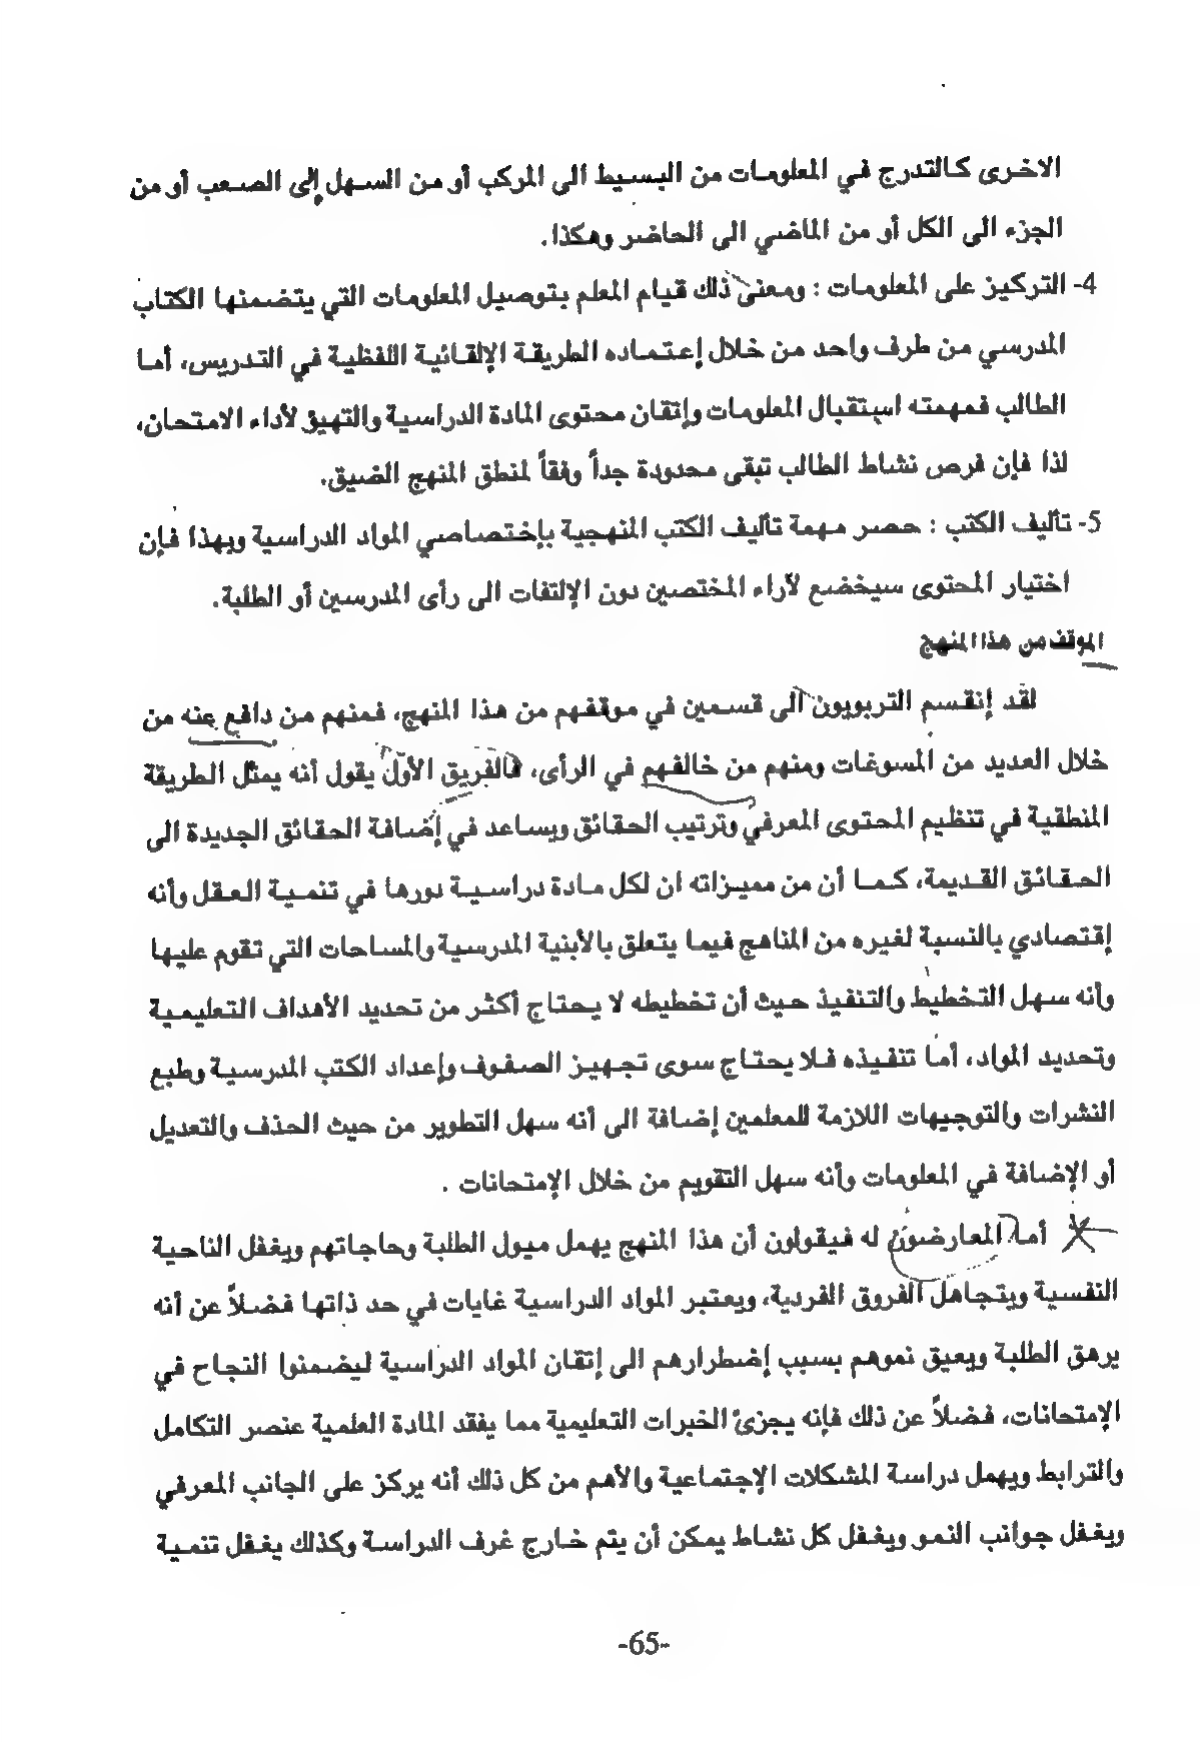 الاخرى كالتدرج في المعلومات من البسيط الى المركب أو من السهل إلى الصعب أو من
الجزء الى الكل أو من الماضي الى الحاضر وهكذا.
4- التركيز على المعلومات : ومعنى ذلك قيام المعلم بتوصيل المعلومات التي يتضمنها الكتاب
المدرسي من طرف واحد من خلال إعتماده الطريقة الإلقائية اللفظية في التدريس، أما
الطالب فمهمته استقبال المعلومات وإتقان محتوى المادة الدراسية والتهيؤ لأداء الامتحان،
لذا فإن فرص نشاط الطالب تبقى محدودة جداً وفقاً لمنطق المنهج الضيق.
5- تأليف الكتب : حصر مهمة تأليف الكتب المنهجية بإختصاصي المواد الدراسية وبهذا فإن
اختيار المحتوى سيخضع لآراء المختصين دون الإلتفات الى رأى المدرسين أو الطلبة.
الموقف من هذا المنهج
لقد إنقسم التربويون الى قسمين في موقفهم من هذا المنهج، فمنهم من دافع عنه من
خلال العديد من المسوغات ومنهم من خالفهم في الرأى، فالفريق الأول يقول أنه يمثل الطريقة
المنطقية في تنظيم المحتوى المعرفي وترتيب الحقائق ويساعد في إضافة الحقائق الجديدة الى
الحقائق القديمة، كما أن من مميزاته ان لكل مادة دراسية دورها في تنمية العقل وأنه
إقتصادي بالنسبة لغيره من المناهج فيما يتعلق بالأبنية المدرسية والمساحات التي تقوم عليها
وأنه سهل التخطيط والتنفيذ حيث أن تخطيطه لا يحتاج أكثر من تحديد الأهداف التعليمية
وتحديد المواد، أما تنفيذه فلا يحتاج سوى تجهيز الصفوف وإعداد الكتب المدرسية وطبع
النشرات والتوجيهات اللازمة للمعلمين إضافة الى أنه سهل التطوير من حيث الحذف والتعديل
أو الإضافة في المعلومات وأنه سهل التقويم من خلال الإمتحانات .
أما المعارضون له فيقولون أن هذا المنهج يهمل ميول الطلبة وحاجاتهم ويغفل الناحية
النفسية ويتجاهل الفروق الفردية، ويعتبر المواد الدراسية غايات في حد ذاتها فضلاً عن أنه
يرهق الطلبة ويعيق نموهم بسبب إضطرارهم الى إتقان المواد الدراسية ليضمنوا النجاح في
الإمتحانات، فضلاً عن ذلك فإنه يجزئ الخبرات التعليمية مما يفقد المادة العلمية عنصر التكامل
والترابط ويهمل دراسة المشكلات الإجتماعية والأهم من كل ذلك أنه يركز على الجانب المعرفي
ويغفل جوانب النمو ويغفل كل نشاط يمكن أن يتم خارج غرف الدراسة وكذلك يغفل تنمية
-65-